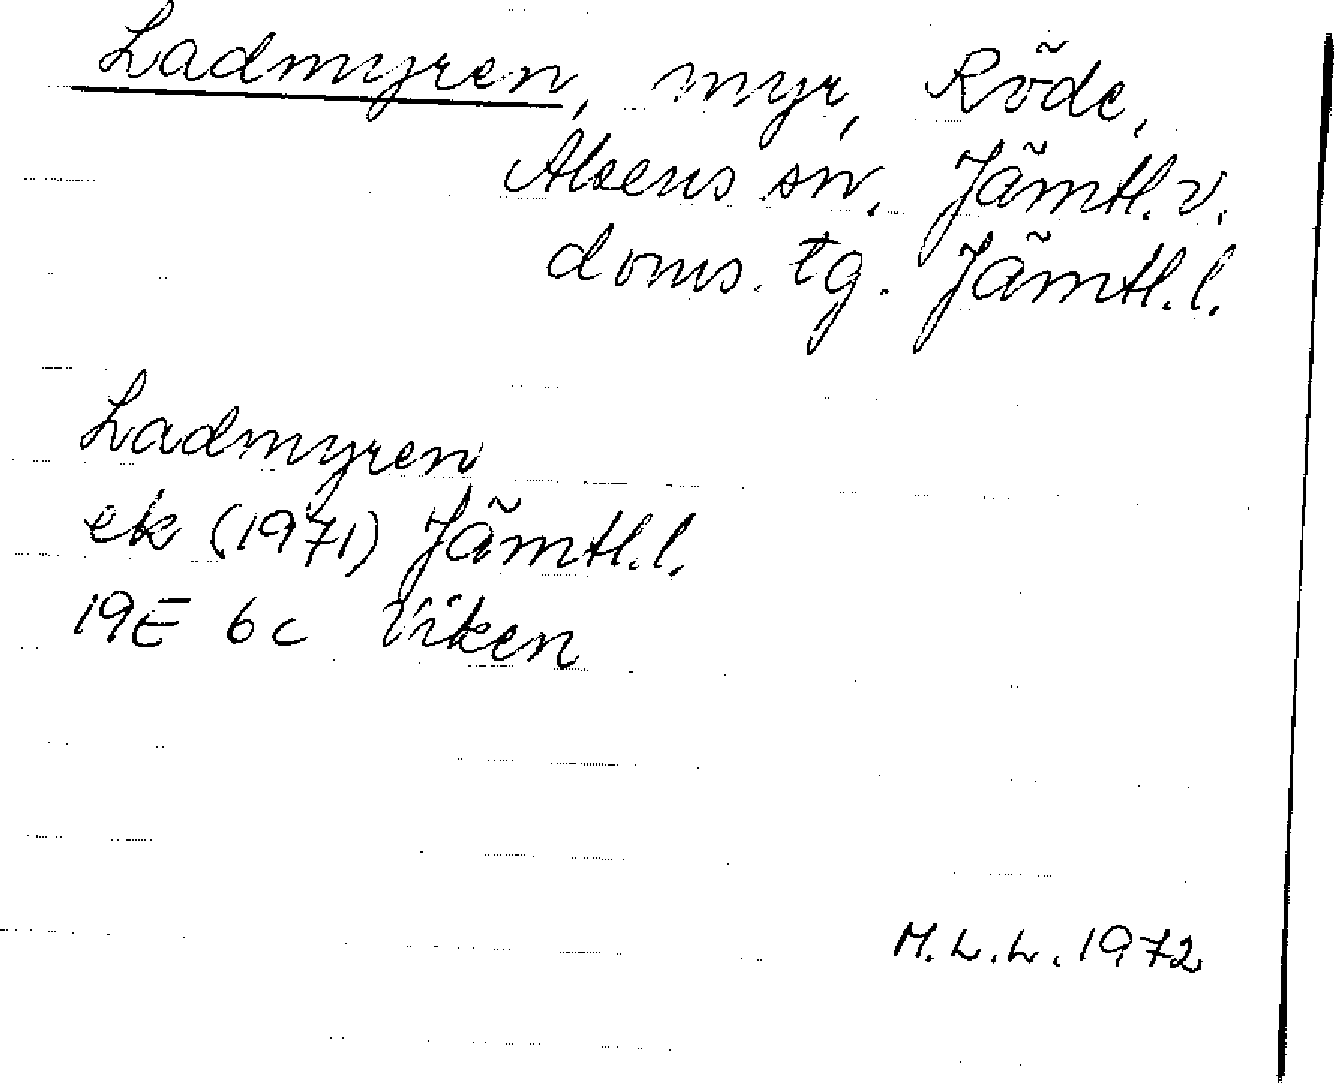 Ladmyren, myr, Röde,
Alsens sn. Jämtl. v.
doms. tg. Jämtl. l.
Ladmyren
ek (1971) Jämtl. l.
19E 6c Viken
M. L. L. 1972